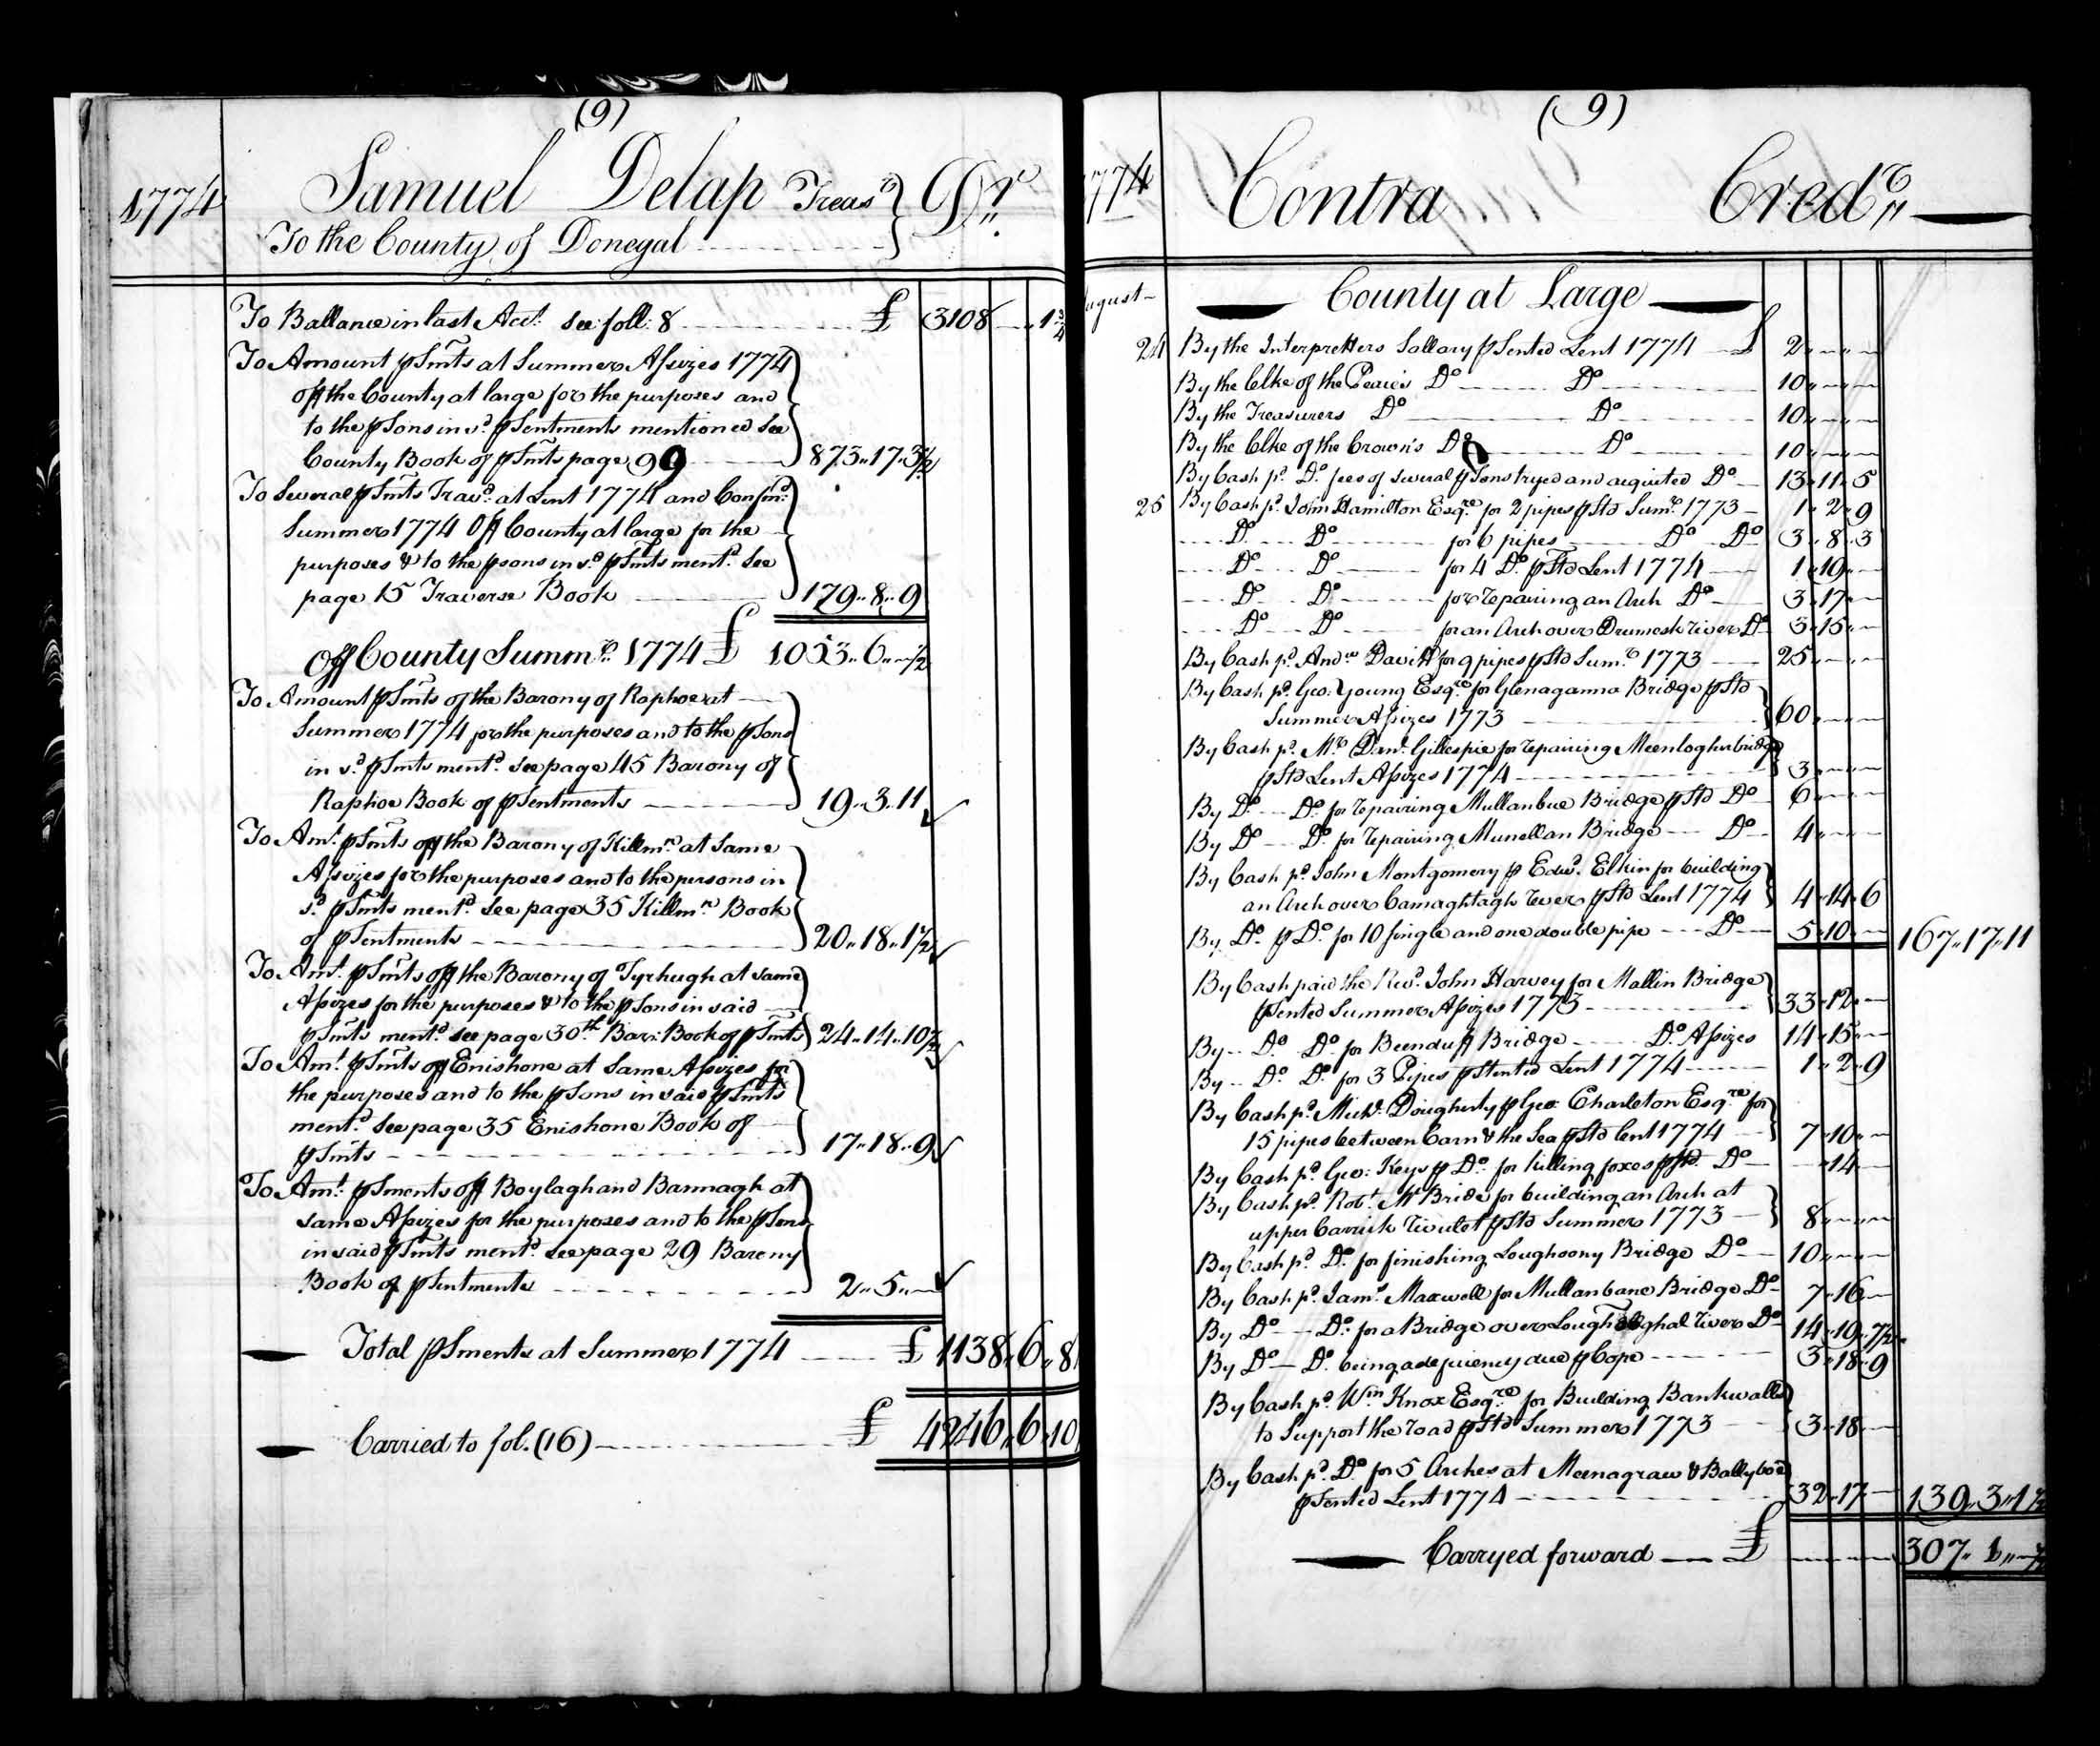 (9)
1774 Samuel Delap Treasr } Dr
To the County of Donegal
To Ballance in last Acct. See foll: 8 £ 3108 „ — „ 1¾
To Amount pSmts at Summer Assizes 1774
off the County at large for the purposes and
to the pSons in sd. pSentments mentioned See
County Book of pSmts page 99 873„17„3½
To Several pSmts Travd. at Lent 1774 and Confmd.
Summer 1774 Off County at large for the
purposes & to the psons in sd. pSmts mentd. See
page 15 Traverse Book 179„8„9
Off County Summr. 1774 £ 1053„6„—½
To Amount pSmts of the Barony of Raphoe at
Summer 1774 for the purposes and to the pSons
in sd. pSmts mentd. see page 45 Barony of
Raphoe Book of pSentments 19„3„11
To Amt. pSmts off the Barony of Killmn. at Same
Assizes for the purposes and to the persons in
sd. pSmts mentd. See page 35 Killmn. Book
of pSentments 20„18„1½
To Amt. pSmts off the Barony of Tyrhugh at same
Assizes for the purposes & to the pSons in said
pSmts mentd. see page 30th. Bar: Book of pSmts 24„14„10½
To Amt. pSmts off Enishone at Same Assizes for
the purposes and to the pSons in said pSmts
mentd. See page 35 Enishone Book of
pSmts 17„18„9
To Amt. pSments off Boylagh and Bannagh at
same Assizes for the purposes and to the pSons
in said pSmts mentd. see page 29 Barony
Book of pSentments 2„5„—
Total pSments at Summer 1774 £ 1138„6„8
Carried to fol. (16) £ 4246„6„10
(9)
1774 Contra Credr.
August County at Large
24 By the Interpretters Sallary pSented Lent 1774 £ 2„—„—
By the Clke of the Peace's Do Do 10„—„—
By the Treasurers Do Do 10„—„—
By the Clke of the Crown's Do Do 10„—„—
By Cash pd. Do. fees of several pSons tryed and acquited Do 13„11„5
25 By Cash pd. John Hamilton Esqre. for 2 pipes pStd Sumr. 1773 1„2„9
Do Do for 6 pipes Do Do 3„8„3
Do Do for 4 Do. pStd Lent 1774 1„19„—
Do Do for repairing an Arch Do 3„17„—
Do Do for an Arch over Drumesk river Do 3„15„—
By Cash pd. Andw. Davitt for 9 pipes pStd Sumr. 1773 25„—„—
By Cash pd. Geo: Young Esqre. for Glenaganna Bridge pStd
Summer Assizes 1773 60„—„—
By Cash pd. Mr. Danl. Gillespie for repairing Meenlogher bridge
pStd Lent Assizes 1774 3„—„—
By Do. Do. for repairing Mullanbue Bridge pStd Do 6„—„—
By Do Do. for repairing Munellan Bridge Do 4„—„—
By Cash pd. John Montgomery p Edwd. Elkin for building
an Arch over Camaghtagh River pStd Lent 1774 4„14„6
By Do. p Do. for 10 single and one double pipe Do 5„10„— 167„17„11
By Cash paid the Revd. John Harvey for Mallin Bridge
pSented Summer Assizes 1773 33„12„—
By Do. Do. for Bunduff Bridge Do. Assizes 14„15„—
By Do. Do. for 3 Pipes pSented Lent 1774 1„2„9
By Cash pd. Michl. Dougherty p Geo: Charleton Esqre. for
15 pipes between Carn & the Sea pStd Lent 1774 7„10„—
By Cash pd. Geo: Keys p Do. for killing foxes pStd. Do —„14„—
By Cash pd. Robt. McBride for building an Arch at
upper Carrick rivulet pStd Summer 1773 8„—„—
By Cash pd. Do. for finishing Loughoony Bridge Do 10„—„—
By Cash pd. Jams. Maxwell for Mullanbane Bridge Do 7„16„—
By Do Do. for a Bridge over river Do 14„19„7½
By Do Do. being a defficiency due p Cope 3„18„9
By Cash pd. Wm. Knox Esqre. for Building Bankwalls
to Support the road pStd Summer 1773 3„18„—
By Cash pd. Do for 5 Arches at Meenagraw & Ballyboe
pSented Lent 1774 32„17„— 139„3„1½
Carryed forward £ 307„1„—½